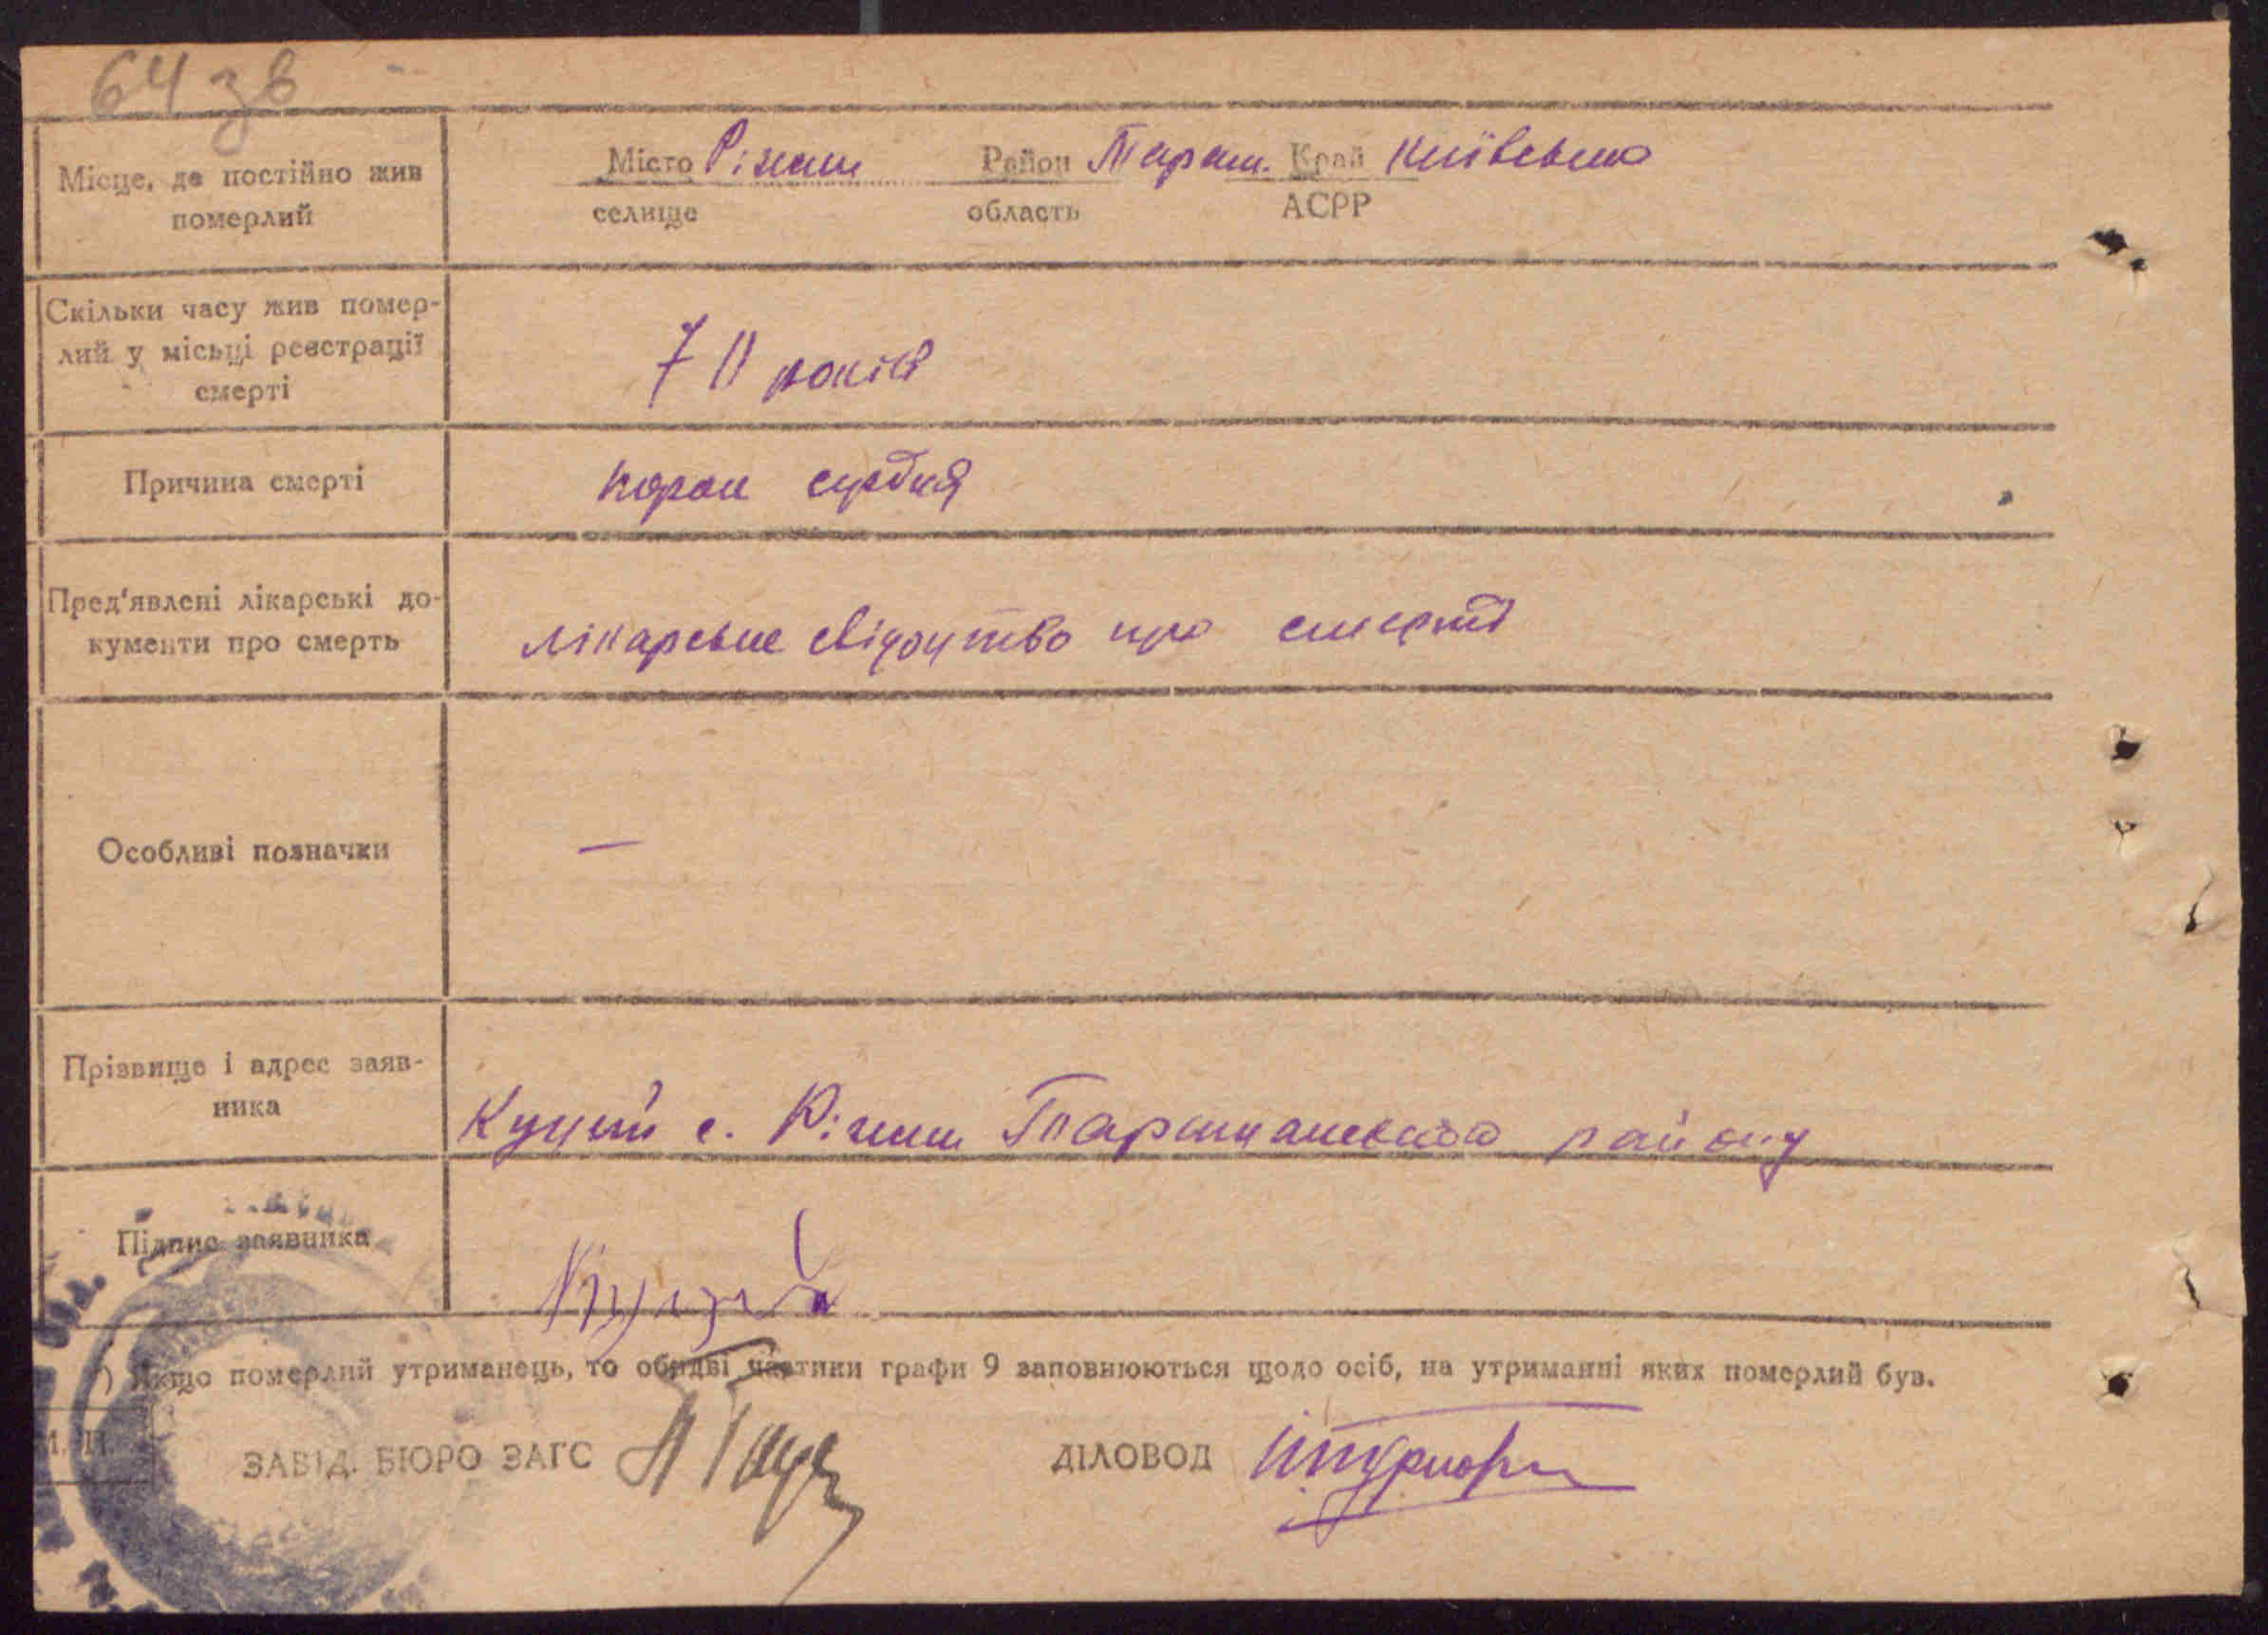 64 зв
Місце, де постійно жив
померлий
Місто Ріжки Район Таращ. Край Київська
селище область АСРР
Скільки часу жив помер-
лий у місьці реєстрації
смерті
711 років
Причина смерті
порок сердця
Пред'явлені лікарські до-
кументи про смерть
лікарське свідоцтво про смерть
Особливі позначки
—
Прізвище і адрес заяв-
ника
Куций с. Ріжки Таращанського району
Підпис заявника
Куций
) Якщо померлий утриманець, то обидві частини графи 9 заповнюються щодо осіб, на утриманні яких померлий був.
М. П.
ЗАВІД. БЮРО ЗАГС
ДІЛОВОД